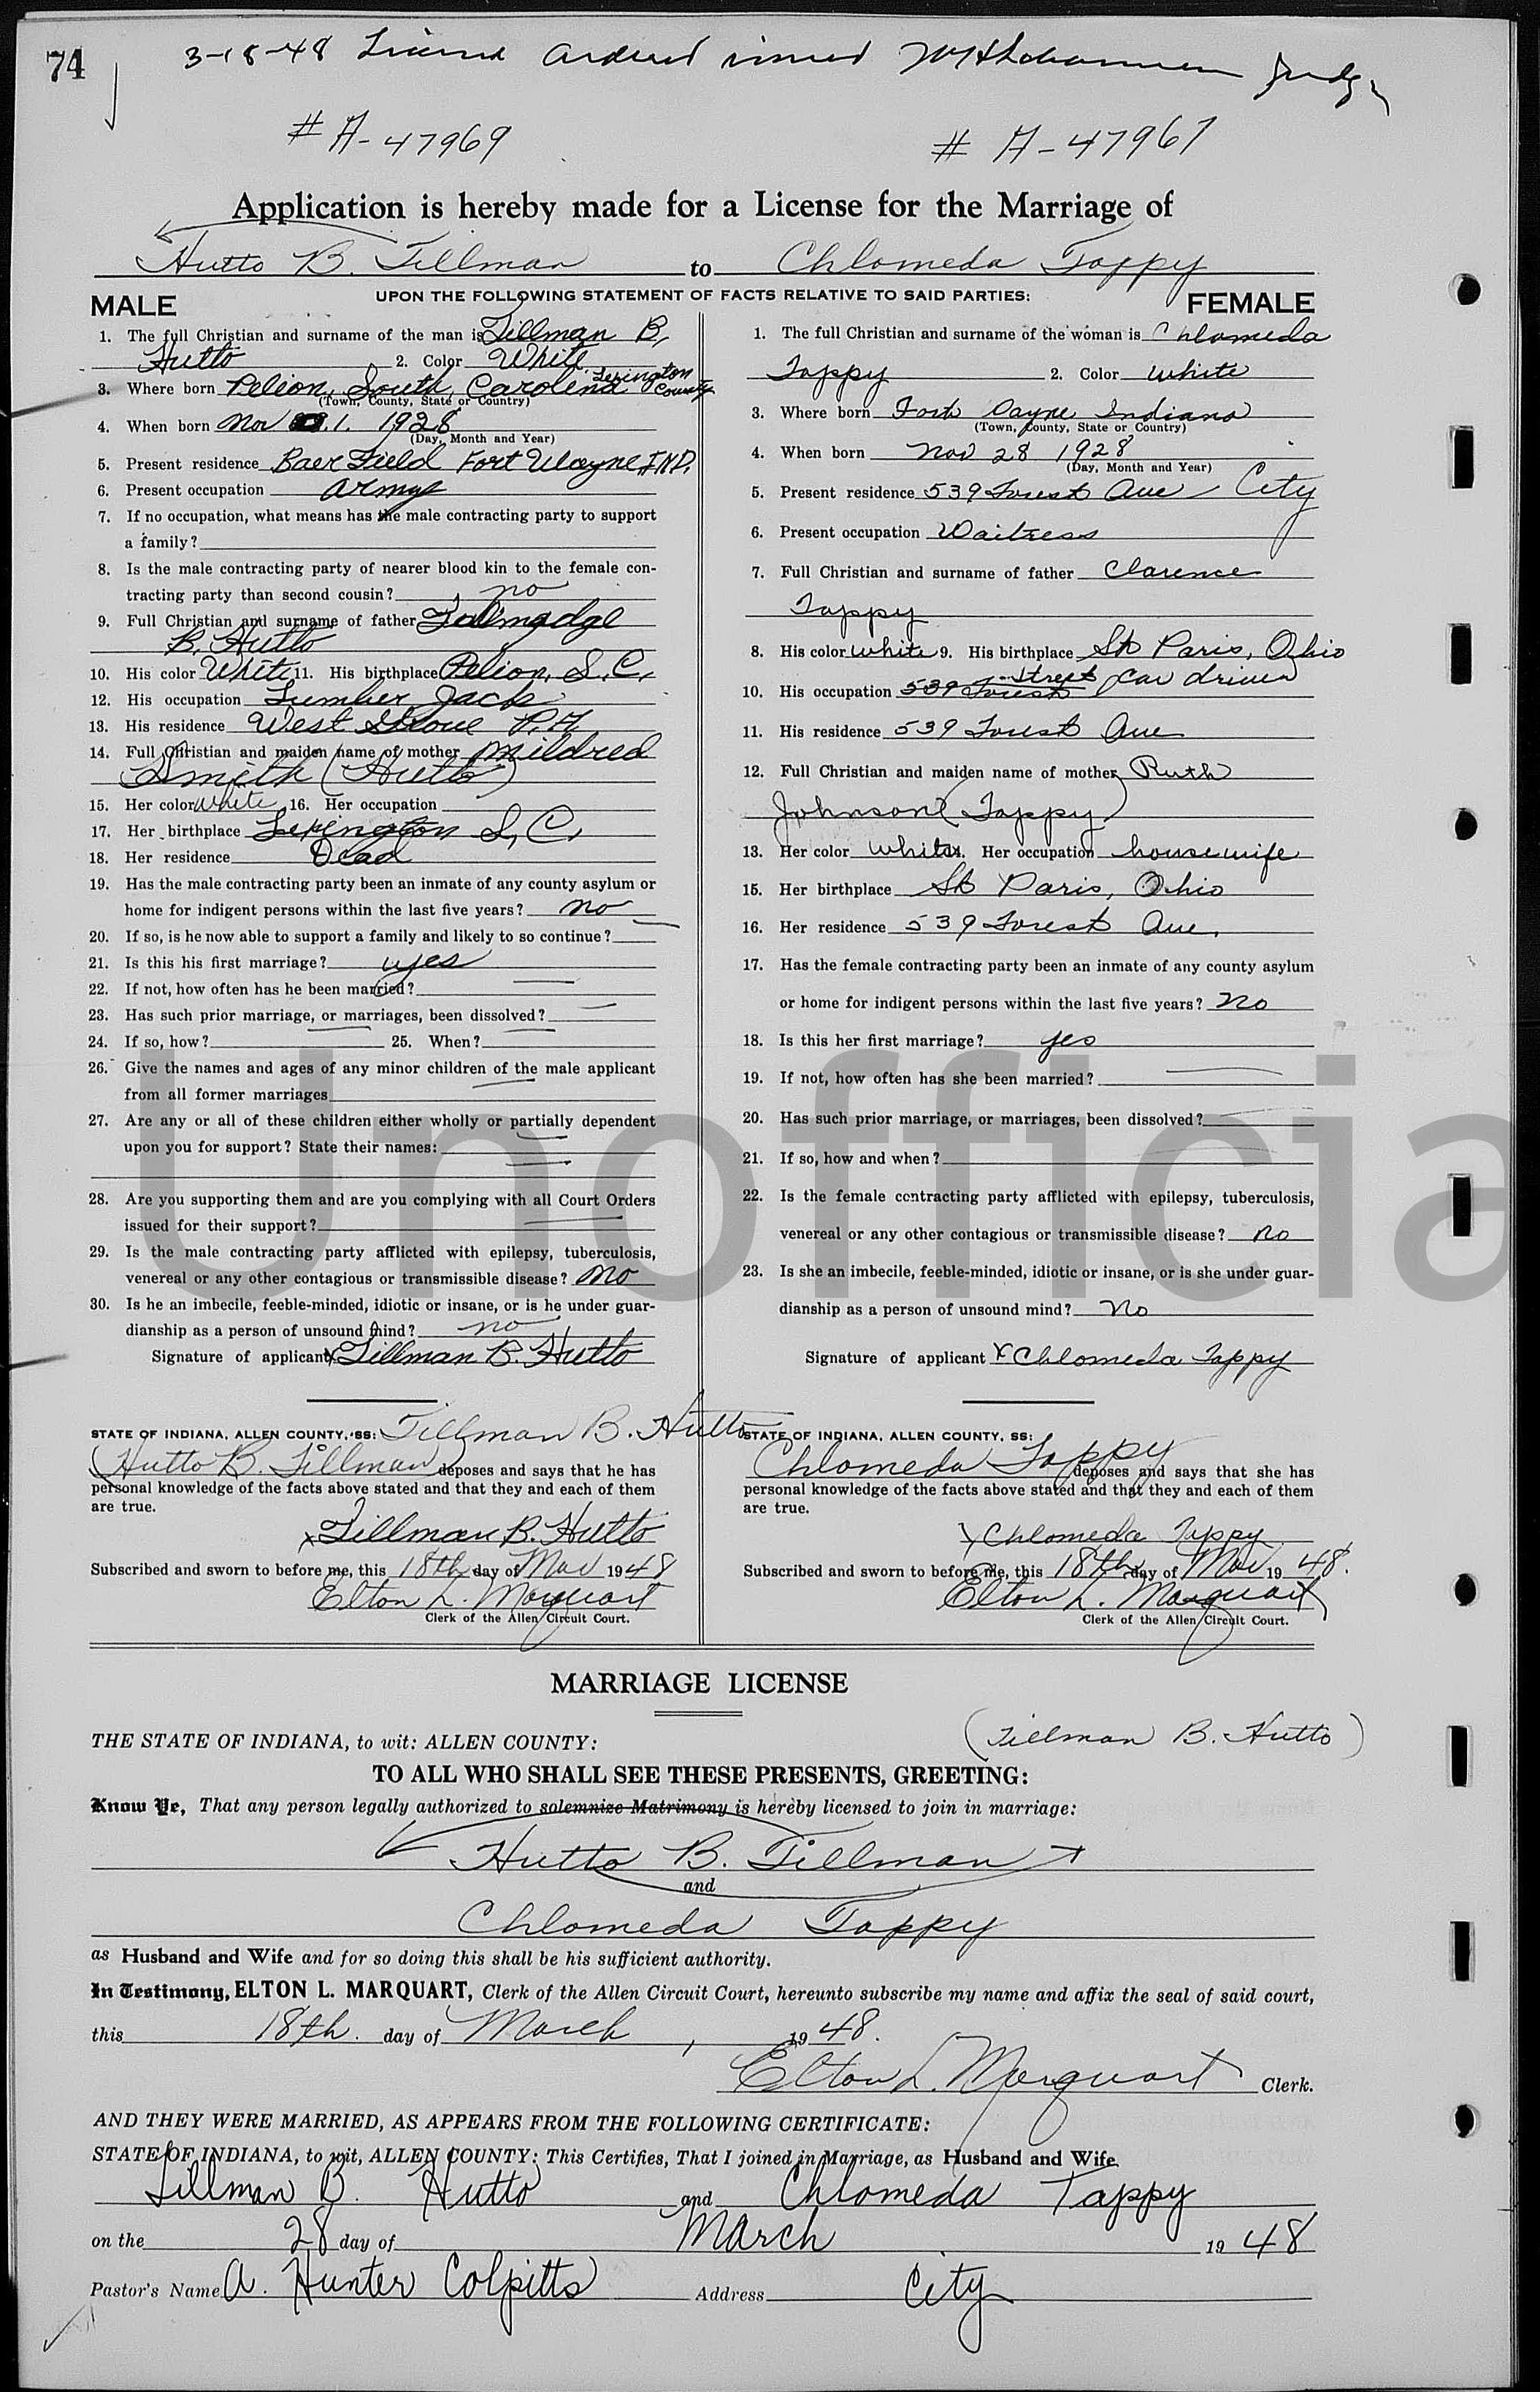 74
3-18-48 License ordered issued Judge
# A-47969 # A-47967
Application is hereby made for a License for the Marriage of
Hutto B. Tillman to Chlomeda Tappy
UPON THE FOLLOWING STATEMENT OF FACTS RELATIVE TO SAID PARTIES:
MALE
1. The full Christian and surname of the man is Tillman B.
Hutto 2. Color White
3. Where born Pelion, South, Carolina Lexington County
(Town, County, State or Country)
4. When born Nov 1. 1928
(Day, Month and Year)
5. Present residence Baer Field Fort Wayne IND.
6. Present occupation army
7. If no occupation, what means has the male contracting party to support
a family?
8. Is the male contracting party of nearer blood kin to the female con-
tracting party than second cousin? no
9. Full Christian and surname of father Talmadge
B. Hutto
10. His color White 11. His birthplace Pelion, S.C.
12. His occupation Lumber Jack
13. His residence West
14. Full Christian and maiden name of mother Mildred
Smith (Hutto)
15. Her color white 16. Her occupation
17. Her birthplace Lexington S, C,
18. Her residence Dead
19. Has the male contracting party been an inmate of any county asylum or
home for indigent persons within the last five years? no
20. If so, is he now able to support a family and likely to so continue?
21. Is this his first marriage? yes
22. If not, how often has he been married?
23. Has such prior marriage, or marriages, been dissolved?
24. If so, how? 25. When?
26. Give the names and ages of any minor children of the male applicant
from all former marriages
27. Are any or all of these children either wholly or partially dependent
upon you for support? State their names:
28. Are you supporting them and are you complying with all Court Orders
issued for their support?
29. Is the male contracting party afflicted with epilepsy, tuberculosis,
venereal or any other contagious or transmissible disease? no
30. Is he an imbecile, feeble-minded, idiotic or insane, or is he under guar-
dianship as a person of unsound mind? no
Signature of applicant x Tillman B. Hutto
STATE OF INDIANA, ALLEN COUNTY, SS: Tillman B. Hutto
(Hutto B. Tillman) deposes and says that he has
personal knowledge of the facts above stated and that they and each of them
are true.
x Tillman B. Hutto
Subscribed and sworn to before me, this 18th day of Mar 1948
Elton L. Marquart
Clerk of the Allen Circuit Court.
FEMALE
1. The full Christian and surname of the woman is Chlomeda
Tappy 2. Color white
3. Where born Fort Wayne Indiana
(Town, County, State or Country)
4. When born Nov 28 1928
(Day, Month and Year)
5. Present residence 539 Forest Ave City
6. Present occupation Waitress
7. Full Christian and surname of father Clarence
Tappy
8. His color white 9. His birthplace St Paris, Ohio
10. His occupation 539 Forest Street car driver
11. His residence 539 Forest Ave
12. Full Christian and maiden name of mother Ruth
Johnson (Tappy)
13. Her color white 14. Her occupation housewife
15. Her birthplace St Paris, Ohio
16. Her residence 539 Forest Ave.
17. Has the female contracting party been an inmate of any county asylum
or home for indigent persons within the last five years? no
18. Is this her first marriage? yes
19. If not, how often has she been married?
20. Has such prior marriage, or marriages, been dissolved?
21. If so, how and when?
22. Is the female contracting party afflicted with epilepsy, tuberculosis,
venereal or any other contagious or transmissible disease? no
23. Is she an imbecile, feeble-minded, idiotic or insane, or is she under guar-
dianship as a person of unsound mind? no
Signature of applicant x Chlomeda Tappy
STATE OF INDIANA, ALLEN COUNTY, SS:
Chlomeda Tappy deposes and says that she has
personal knowledge of the facts above stated and that they and each of them
are true.
x Chlomeda Tappy
Subscribed and sworn to before me, this 18th day of Mar 1948.
Elton L. Marquart
Clerk of the Allen Circuit Court.
Unofficia
MARRIAGE LICENSE
THE STATE OF INDIANA, to wit: ALLEN COUNTY: (Tillman B. Hutto)
TO ALL WHO SHALL SEE THESE PRESENTS, GREETING:
Know Ye, That any person legally authorized to solemnize Matrimony is hereby licensed to join in marriage:
Hutto B. Tillman
and
Chlomeda Tappy
as Husband and Wife and for so doing this shall be his sufficient authority.
In Testimony, ELTON L. MARQUART, Clerk of the Allen Circuit Court, hereunto subscribe my name and affix the seal of said court,
this 18th. day of March, 1948.
Elton L. Marquart Clerk.
AND THEY WERE MARRIED, AS APPEARS FROM THE FOLLOWING CERTIFICATE:
STATE OF INDIANA, to wit, ALLEN COUNTY: This Certifies, That I joined in Marriage, as Husband and Wife
Tillman B. Hutto and Chlomeda Tappy
on the 28 day of March 1948
Pastor's Name A. Hunter Colpitts Address City